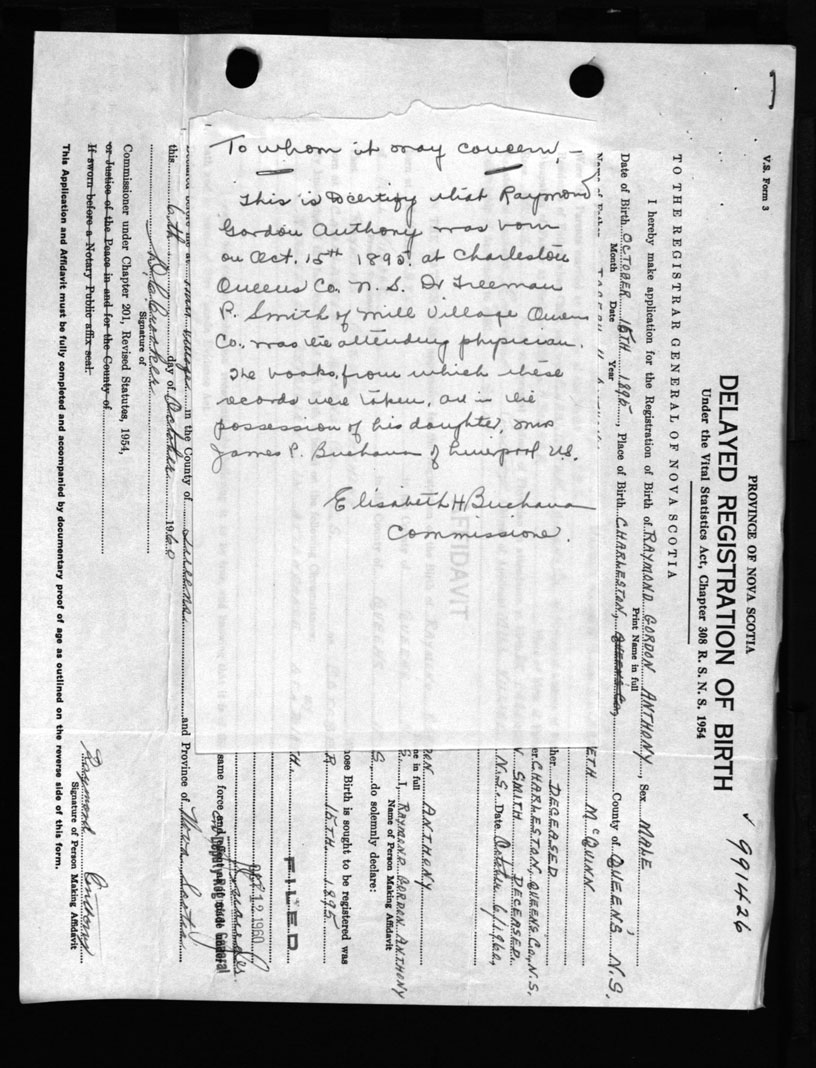 To whom it may concern, -
This is to certify that Raymond
Gordon Anthony was born
on Oct. 15th 1895 at Charleston
Queens Co. N. S. Dr Freeman
P. Smith of Mill Village Queens
Co., was the attending physician.
The books, from which these
records were taken, are in the
possession of his daughter, Mrs
James P. Buchanan of Liverpool N.S.
Elisabeth H Buchanan
Commissioner.
V.S. Form 3
PROVINCE OF NOVA SCOTIA
DELAYED REGISTRATION OF BIRTH
Under the Vital Statistics Act, Chapter 308 R. S. N. S. 1954
✓ 991426
TO THE REGISTRAR GENERAL OF NOVA SCOTIA
I hereby make application for the Registration of Birth of RAYMOND GORDON ANTHONY, Sex MALE
Print Name in full
Date of Birth OCTOBER 15TH 1895, Place of Birth CHARLESTON, QUEEN'S CO, County of QUEEN'S N.S,
Month Date Year
ETH McQUINN
her DECEASED
er CHARLESTON, QUEENS CO, N.S,
SMITH DECEASED.
N.S. Date October 6/1960,
AFFIDAVIT
ON ANTHONY
me in full
S. I, RAYMOND GORDON ANTHONY
Name of Person Making Affidavit
S, do solemnly declare:
hose Birth is sought to be registered was
R 15TH 1895
TH
FILED
12 1960
same force and
Deputy Registrar General
in the County of Queens and Province of Nova Scotia
this 6th day of October 1960
Signature of
Commissioner under Chapter 201, Revised Statutes, 1954,
or Justice of the Peace in and for the County of
If sworn before a Notary Public affix seal.
Raymond Anthony
Signature of Person Making Affidavit
This Application and Affidavit must be fully completed and accompanied by documentary proof of age as outlined on the reverse side of this form.